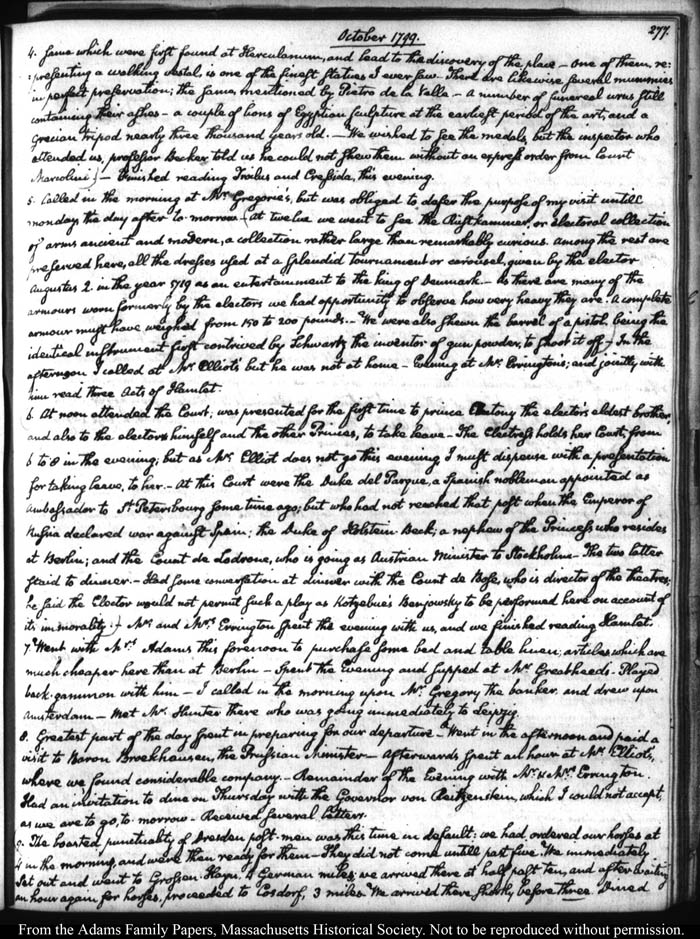 October 1799.
277.
4. some which were first found at Herculanum, and lead to the discovery of the place — One of them, re:
:presenting a walking vestal, is one of the finest statues I ever saw. There are likewise several mummies
in perfect preservation; the same, mentioned by Pietro de la Valle — a number of funereal urns still
containing their ashes — a couple of lions of Egyptian sculpture at the earliest period of the art; and a
Grecian tripod nearly three thousand years old. — We wished to see the medals, but the inspector who
attended us, professor Becker, told us he could not shew them without an express order from Count
Marcolini) — Finished reading Troilus and Cressida, this evening.
5. Called in the morning at Mr. Gregorie's, but was obliged to defer the purpose of my visit untill
monday the day after to-morrow — (At twelve we went to see the Rüstkammer, or electoral collection
of arms ancient and modern, a collection rather large than remarkably curious. Among the rest are
preserved here, all the dresses used at a splendid tournament or carousel, given by the elector
Augustus 2. in the year 1719 as an entertainment to the king of Denmark. — As there are many of the
armours worn formerly by the electors we had opportunity to observe how very heavy they are. A complete
armour must have weighed from 150 to 200 pounds. — We were also shewn the barrel of a pistol, being the
identical instrument first contrived by Schwartz the inventor of gun powder, to shoot it off) — In the
afternoon I called at Mr. Elliot's but he was not at home — Evening at Mr. Errington's; and jointly with
him read three Acts of Hamlet.
6. At noon attended the Court; was presented for the first time to prince Antony the elector's eldest brother,
and also to the elector himself and the other Princes, to take leave — The Electress holds her Court, from
6 to 8 in the evening; but as Mr. Elliot does not go this evening, I must dispense with a presentation
for taking leave, to her. — At this Court were the Duke del Parque, a Spanish nobleman appointed as
Ambassador to St. Petersbourg some time ago; but who had not reached that post when the Emperor of
Russia declared war against Spain; the Duke of Holstein Beck, a nephew of the Princess who resides
at Berlin; and the Count de Lodrone, who is going as Austrian Minister to Stockholm — The two latter
staid to dinner. — Had some conversation at dinner with the Count de Bose, who is director of the theatres;
he said the Elector would not permit such a play as Kotzebue's Benjowsky to be performed here on account of
its immorality.) — Mr. and Mrs. Errington spent the evening with us, and we finished reading Hamlet.
7. Went with Mrs. Adams this forenoon to purchase some bed and table linen; articles which are
much cheaper here than at Berlin — Spent the Evening and supped at Mr. Greatheed's. Played
back-gammon with him — I called in the morning upon Mr. Gregory the banker, and drew upon
Amsterdam — Met Mr. Hunter there who was going immediately to Leipzig.
8. Greatest part of the day spent in preparing for our departure — Went in the afternoon and paid a
visit to Baron Brockhausen, the Prussian Minister — Afterwards spent an hour at Mr. Elliot's,
where we found considerable company. — Remainder of the Evening with Mr. & Mrs. Errington
Had an invitation to dine on Thursday with the Governor von Reitzenstein, which I could not accept,
as we are to go, to-morrow. — Received several letters.
9. The boasted punctuality of Dresden post-men was this time in default; we had ordered our horses at
4 in the morning, and were then ready for them — They did not come untill past five. We immediately
set out and went to Grossen-Hayn, 4 German miles; we arrived there at half past ten, and after waiting
an hour again for horses, proceeded to Cosdorf, 3 miles. We arrived there shortly before three. Dined
From the Adams Family Papers, Massachusetts Historical Society. Not to be reproduced without permission.